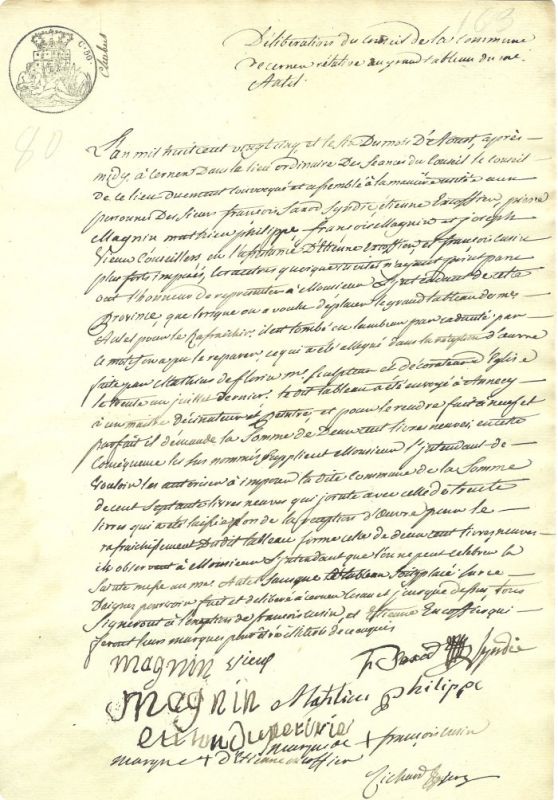 163
C. 80.
80
Déliberations du conseil de la commune
de cernex relative au grand tableau du me.
Autel.
L'an mil huit cent vingt cinq et le six Du mois D'Aoust, après
midy, à Cernex Dans le lieu ordinaire Des Seances du Conseil le conseil
de ce lieu Duement Convoqué et assemblé à la manière usitée aux
personnes Des Sieurs françois Saxod Syndic etienne Excoffier, pierre
Magnin mathieu philippe, françois Magnin et joseph
Vieux Conseillers en l'assistance D'Etienne Excoffier et françois cusin
plus forts imposés, les autres quoique invités n'ayant point paru
ont l'honneur de representer à Monsieur L'jntendant de cette
Province, que lorsque on a voulu déplacer le grand tableau du me.
Autel pour le Rafraichir, il est tombé en lambeau par caducité par
ce motif on a pu le reparer, ce qui a été allegué dans la reception d'œuvre
faite par Mathias de florin me. sculpteur et décorateur d'Eglise
le trente un juillet dernier. le dit tableau a été envoyé à Annecy
à un maitre Déssinateur et peintre, et pour le rendre fait à neuf et
parfait il demande la Somme de Deux cent livres neuves, en cette
Conséquence les sus nommés supplient Monsieur L'jntendant de
Vouloir les autoriser à imposer la dite commune de la Somme
de cent Septante livres neuves qui jointe avec celle de trente
livres qui a été laissée lors de la reception d'Œuvre pour le
rafraichissement Dudit tableau forme celle de deux cent livres neuves
ils observent à Monsieur L'jntendant que l'on ne peut celebrer la
Sainte messe au me. Autel Jusque le tableau soit placé sur ce
Daignez pourvoir fait et deliberé à cernex l'an et jour que dessus, tous
Signeront à l'exception de françois cusin, et Etienne Excoffier qui
feront leurs marques plus très illitérés de ce enquis
magnin vieux f. Saxod Syndic
magnin Mathieu philippe
marque de + françois cusin
marque + d'Etienne excoffier